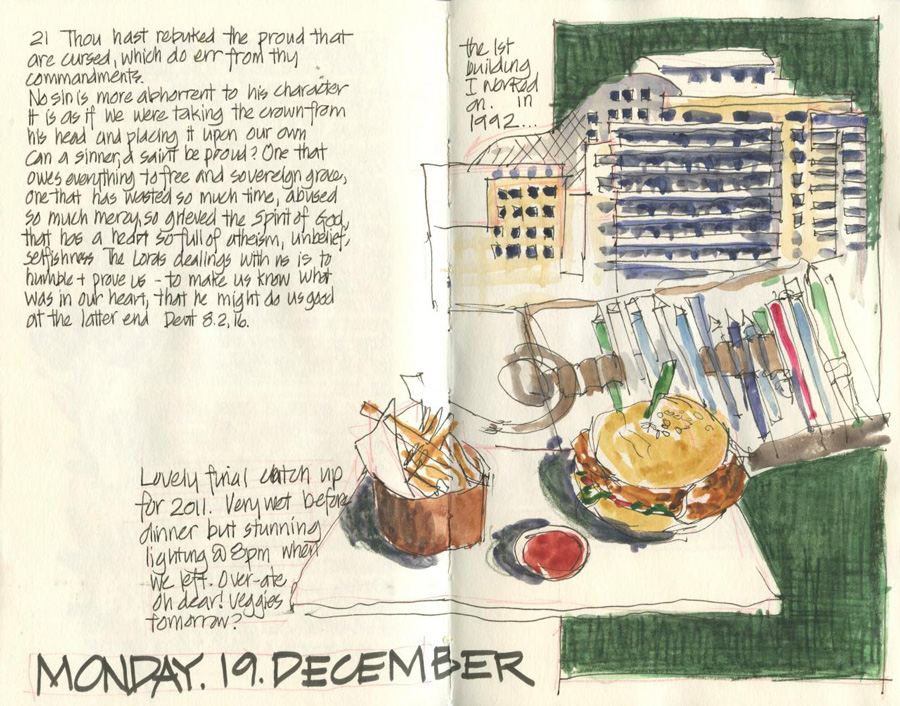 21 Thou hast rebuked the proud that
are cursed, which do err from thy
commandments.
No sin is more abhorrent to his character
It is as if we were taking the crown from
his head and placing it upon our own
Can a sinner, a saint be proud? One that
owes everything to free and sovereign grace,
one that has wasted so much time, abused
so much mercy, so grieved the Spirit of God,
that has a heart so full of atheism, unbelief,
selfishness The Lords dealings with us is to
humble + prove us - to make us know what
was in our heart, that he might do us good
at the latter end Deut 8.2,16.
the 1st
building
I worked
on. in
1992...
Lovely final catch up
for 2011. Very wet before
dinner but stunning
lighting @ 8pm when
we left. Over-ate
oh dear! Veggies
tomorrow?
MONDAY. 19. DECEMBER